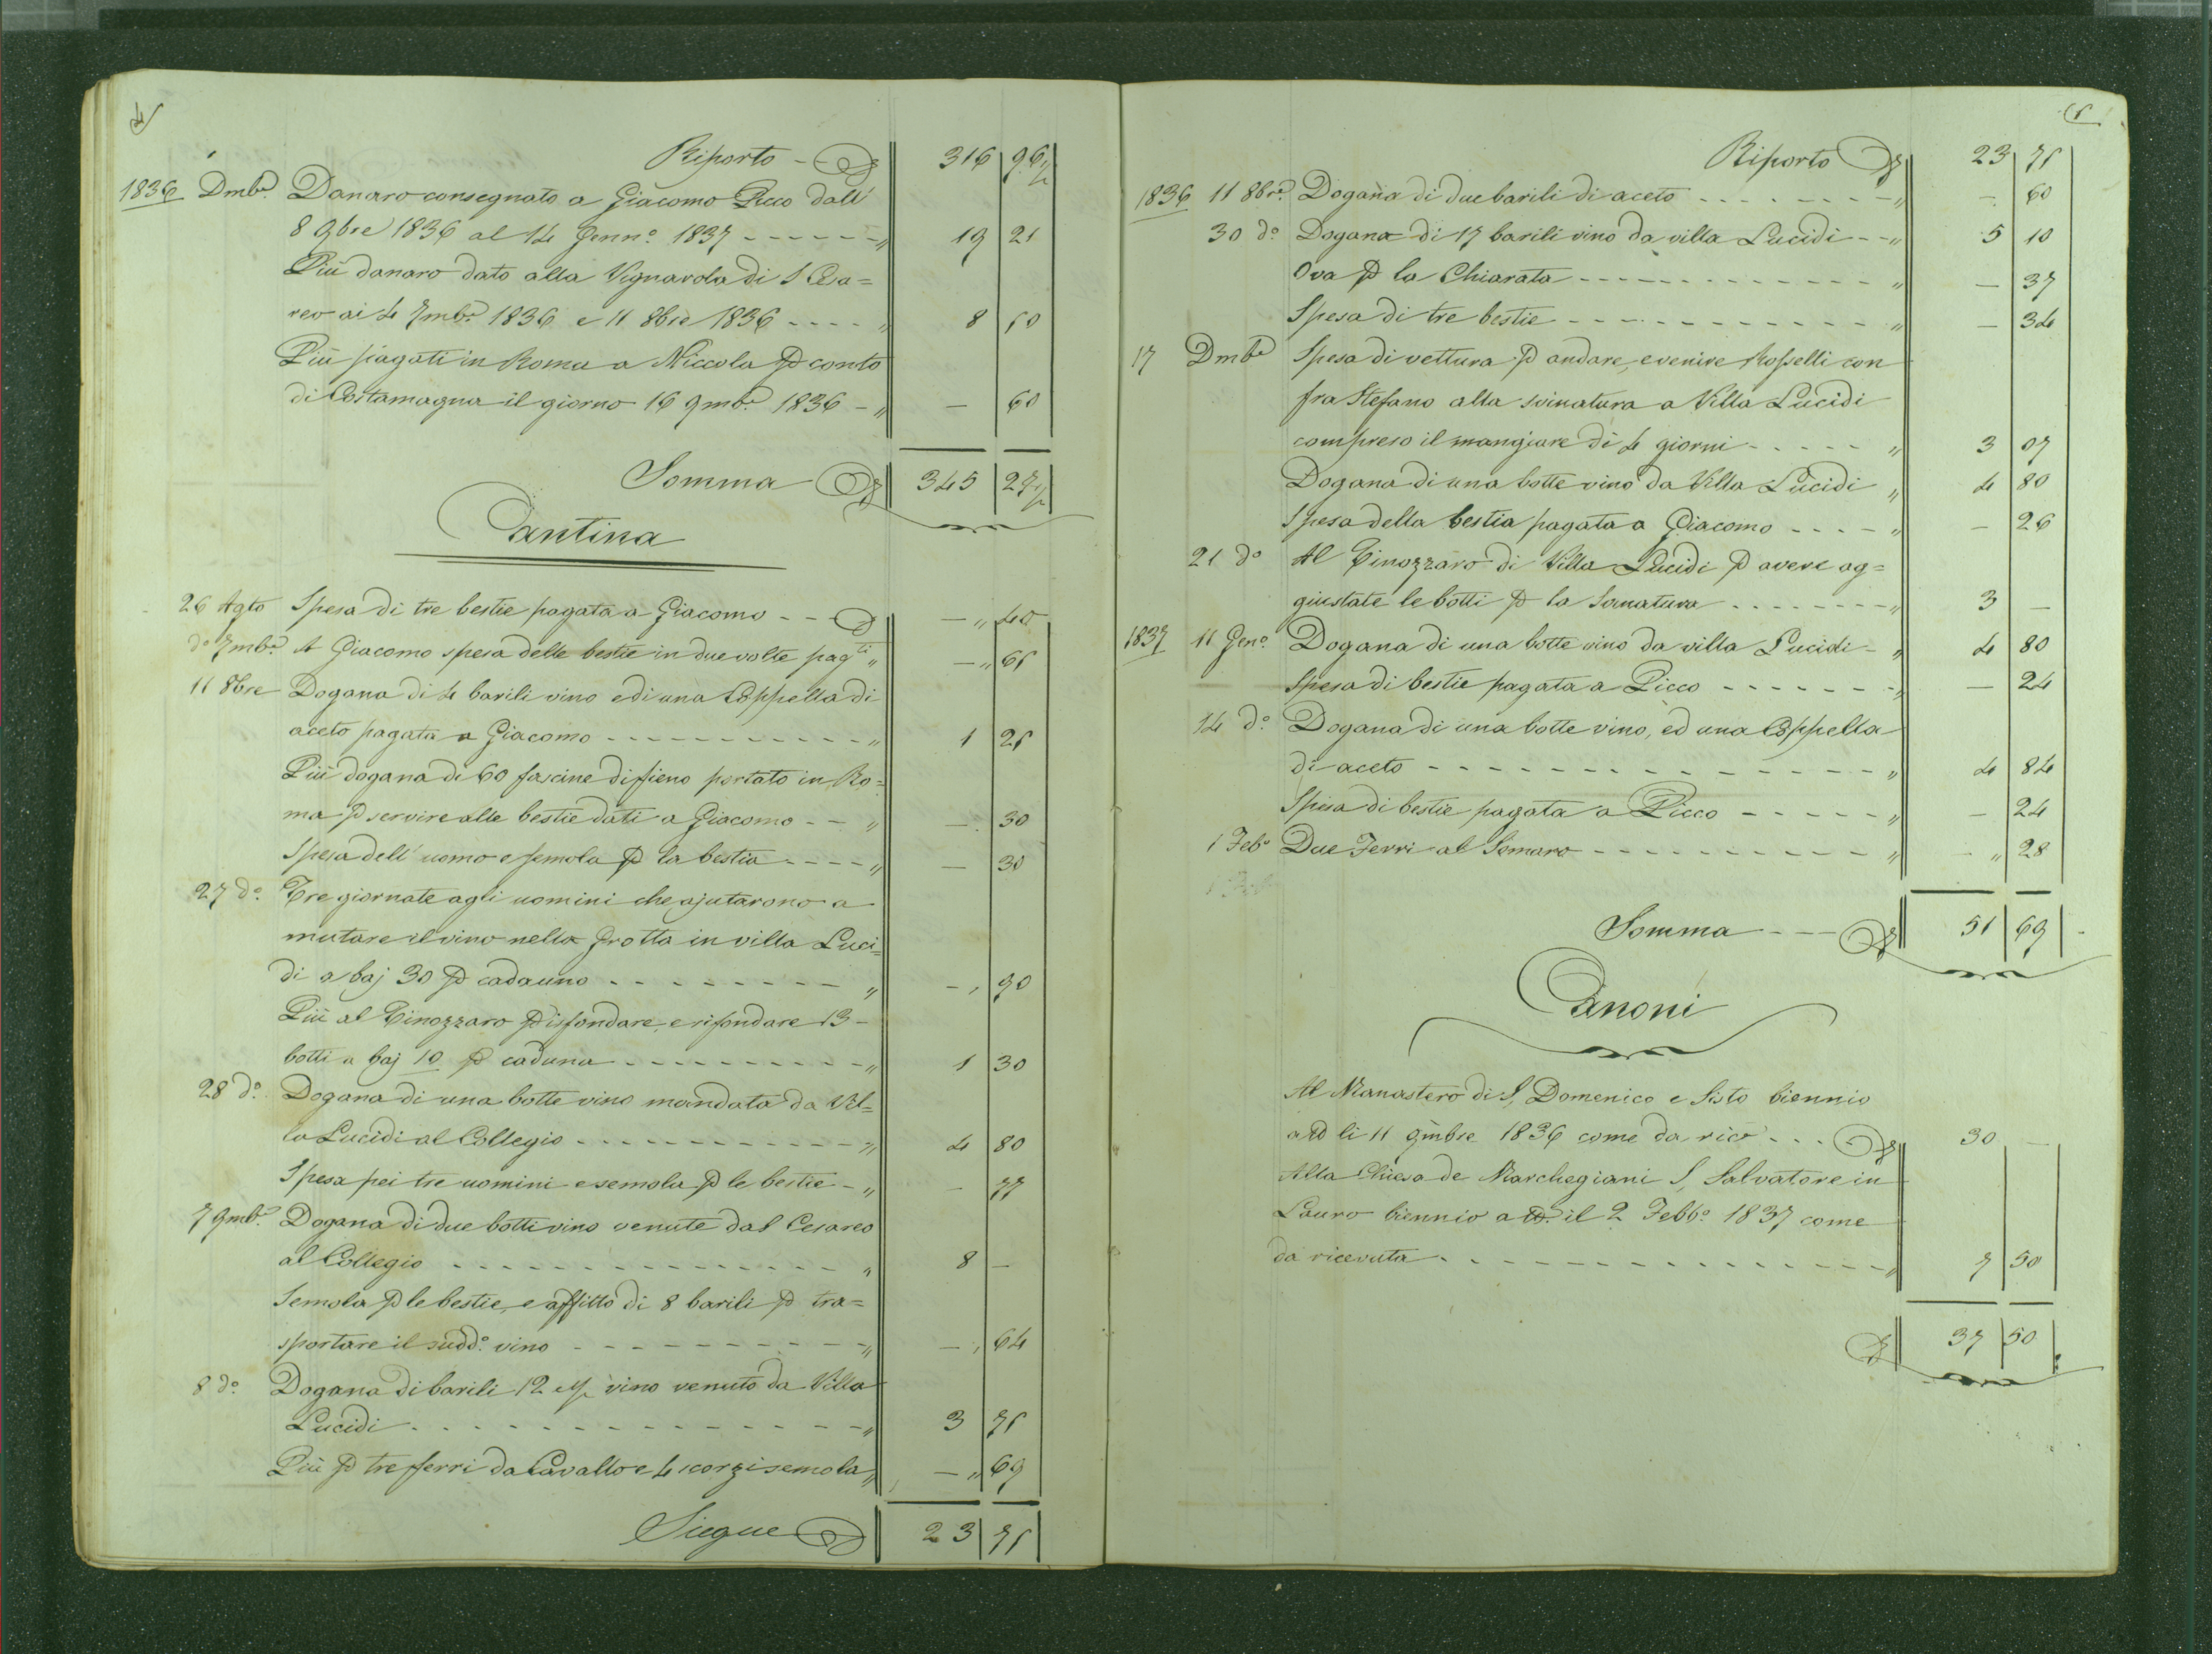 4
Riporto - - 316 96½
1836 Dmbe Danaro consegnato a Giacomo Picco dall'
8 9bre 1836 al 14 Genn.o 1837 - - - - - " 19 21
Più danaro dato alla Vignarola di S Cesa=
reo ai 4 7mb.e 1836 e 11 8bre 1836 - - - - " 8 50
Più pagati in Roma a Niccola p conto
di Costamagna il giorno 16 9mb.e 1836 - " — 60
Somma 345 27½
Cantina
26 Agto Spesa di tre bestie pagata a Giacomo - - — " 40
d.o 7mb.e A Giacomo spesa delle bestie in due volte pagti " — " 65
11 8bre Dogana di 4 barili vino e di una Coppella di
aceto pagata a Giacomo - - - - - - - - - - " 1 25
Più dogana di 60 fascine di fieno portato in Ro=
ma p servire alle bestie dati a Giacomo - - " — 30
Spesa dell' uomo e semola p la bestia - - - - " — 30
27 d.o Tre giornate agli uomini che ajutarono a
mutare il vino nella Grotta in villa Luci=
di a baj 30 p cadauno - - - - - - - - " — , 90
Più al Tinozzaro p isfondare, e rifondare 13
botti a baj 10 p caduna - - - - - - - - - " 1 30
28 d.o Dogana di una botte vino mandata da Vil=
la Lucidi al Collegio - - - - - - - - - - - " 4 80
Spesa pei tre uomini e semola p le bestie - " — 77
7 9mb.e Dogana di due botti vino venute dal Cesareo
al Collegio - - - - - - - - - - - - - - " 8 —
Semola p le bestie, e affitto di 8 barili p tra=
sportare il sudd.o vino - - - - - - - - - - " — , 64
8 d.o Dogana di barili 12 e ½ vino venuto da Villa
Lucidi - - - - - - - - - - - - - - - " 3 75
Più p tre ferri da Cavallo e 4 scorzi semola " — " 69
Siegue 23 75
5
Riporto 23 75
1836 11 8bre Dogana di due barili di aceto - - - - - - - " — 60
30 d.o Dogana di 17 barili vino da villa Lucidi - - " 5 10
Ova p la Chiarata - - - - - - - - - - - - " — 37
Spesa di tre bestie - - - - - - - - - - - - " — 34
17 Dmbe Spesa di vettura p andare, e venire Rosselli con
fra Stefano alla svinatura a Villa Lucidi
compreso il mangiare di 4 giorni - - - - - " 3 07
Dogana di una botte vino da Villa Lucidi " 4 80
Spesa della bestia pagata a Giacomo - - - - " — 26
21 d.o Al Tinozzaro di Villa Lucidi p avere ag=
giustate le botti p la Svinatura - - - - - - - " 3 —
1837 11 Gen.o Dogana di una botte vino da villa Lucidi - " 4 80
Spesa di bestie pagata a Picco - - - - - - - " — 24
14 d.o Dogana di una botte vino, ed una Coppella
di aceto - - - - - - - - - - - - - - - " 4 84
Spesa di bestie pagata a Picco - - - - - " — 24
1 Feb.o Due Ferri al Somaro - - - - - - - - - - " — " 28
Somma - - - 51 69
Canoni
Al Monastero di S. Domenico e Sisto biennio
a li 11 9mbre 1836 come da rico - - - 30 —
Alla Chiesa de Marchegiani S. Salvatore in
Lauro biennio a il 2 Febb.o 1837 come
da ricevuta - - - - - - - - - - - - - - - " 7 50
37 50